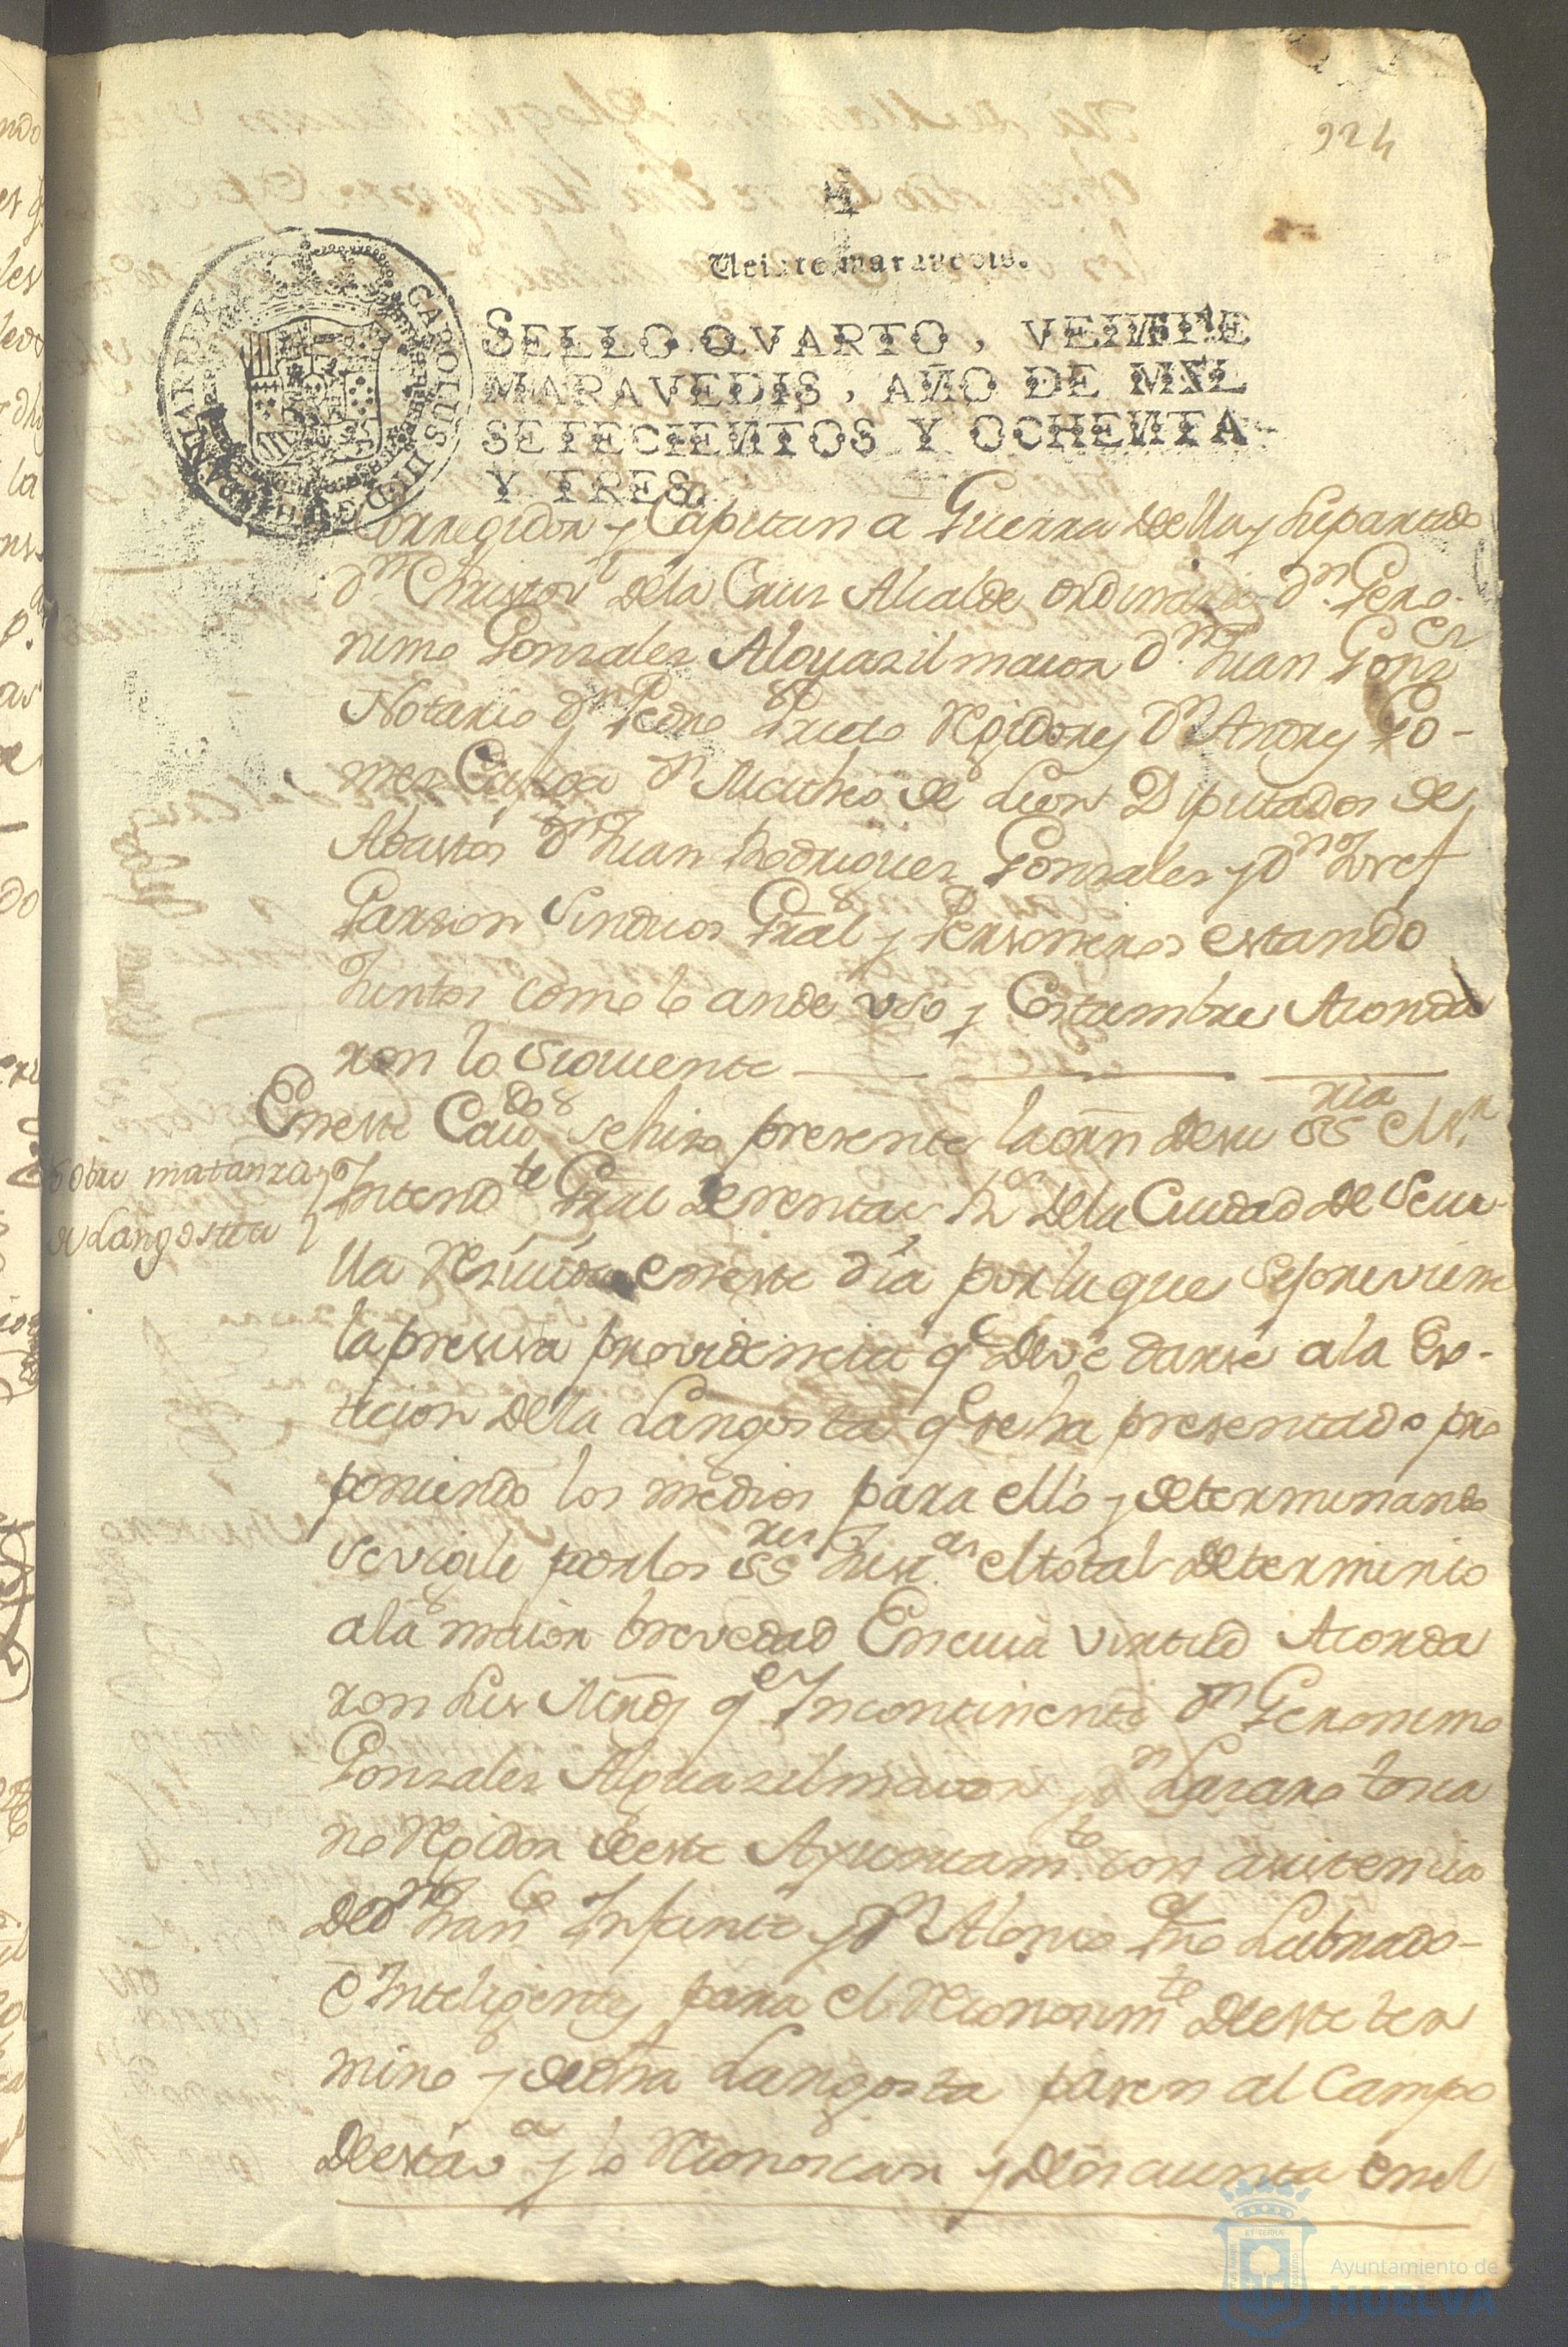 924
Veinte maravedis.
SELLO QVARTO, VEINTE
MARAVEDIS, AÑO DE MIL
SETECIENTOS Y OCHENTA
Y TRES.
CAROLUS III D G HISPANIAR REX
Corregidor y Capitan a Guerra de ella y su partido
Dn Christovl de la Cruz Alcalde ordinario Dn Gero-
nimo Gonzales Alguazil maior Dn Juan Gonzez
Notario Dn Pedro Prieto Regidores Dn Andres Go-
mes Dn Matheo de Leon Diputados de
Abastos Dn Juan Rodriguez Gonzales y Dn Jph
Garzon Sindicos Gral y Personeros estando
Juntos como lo an de uso y Costumbre Acorda
ron lo siguiente
En este Cavdo se hizo presente la orn de su SSria el Sr
Sobre matanza
de Langosta
Intendte Gral de rentas Rs de la Ciudad de Sevi
lla resivida en este dia por la que se previene
la presisa providencia qe deve darse a la Ex-
ticion de la Langosta qe se ha presentado pro
poniendo los medios para ello y determinando
se vigile por los SSres Justas el total determinio
a la maior brevedad En cuia virtud Acorda
ron sus Mrds qe Incontinenti Dn Geronimo
Gonzales Alguazil maior y Dn Lazaro Tosca
no Regidor de este Ayuntamte con asistencia
de Dn Juan Infante y Dn Alonso Labrado-
e Inteligentes para el Reconosimte de este ter
mino y de dha Langosta pasen al Campo
de esta va y lo Reconoscan y den cuenta en el
Ayuntamiento de
HUELVA